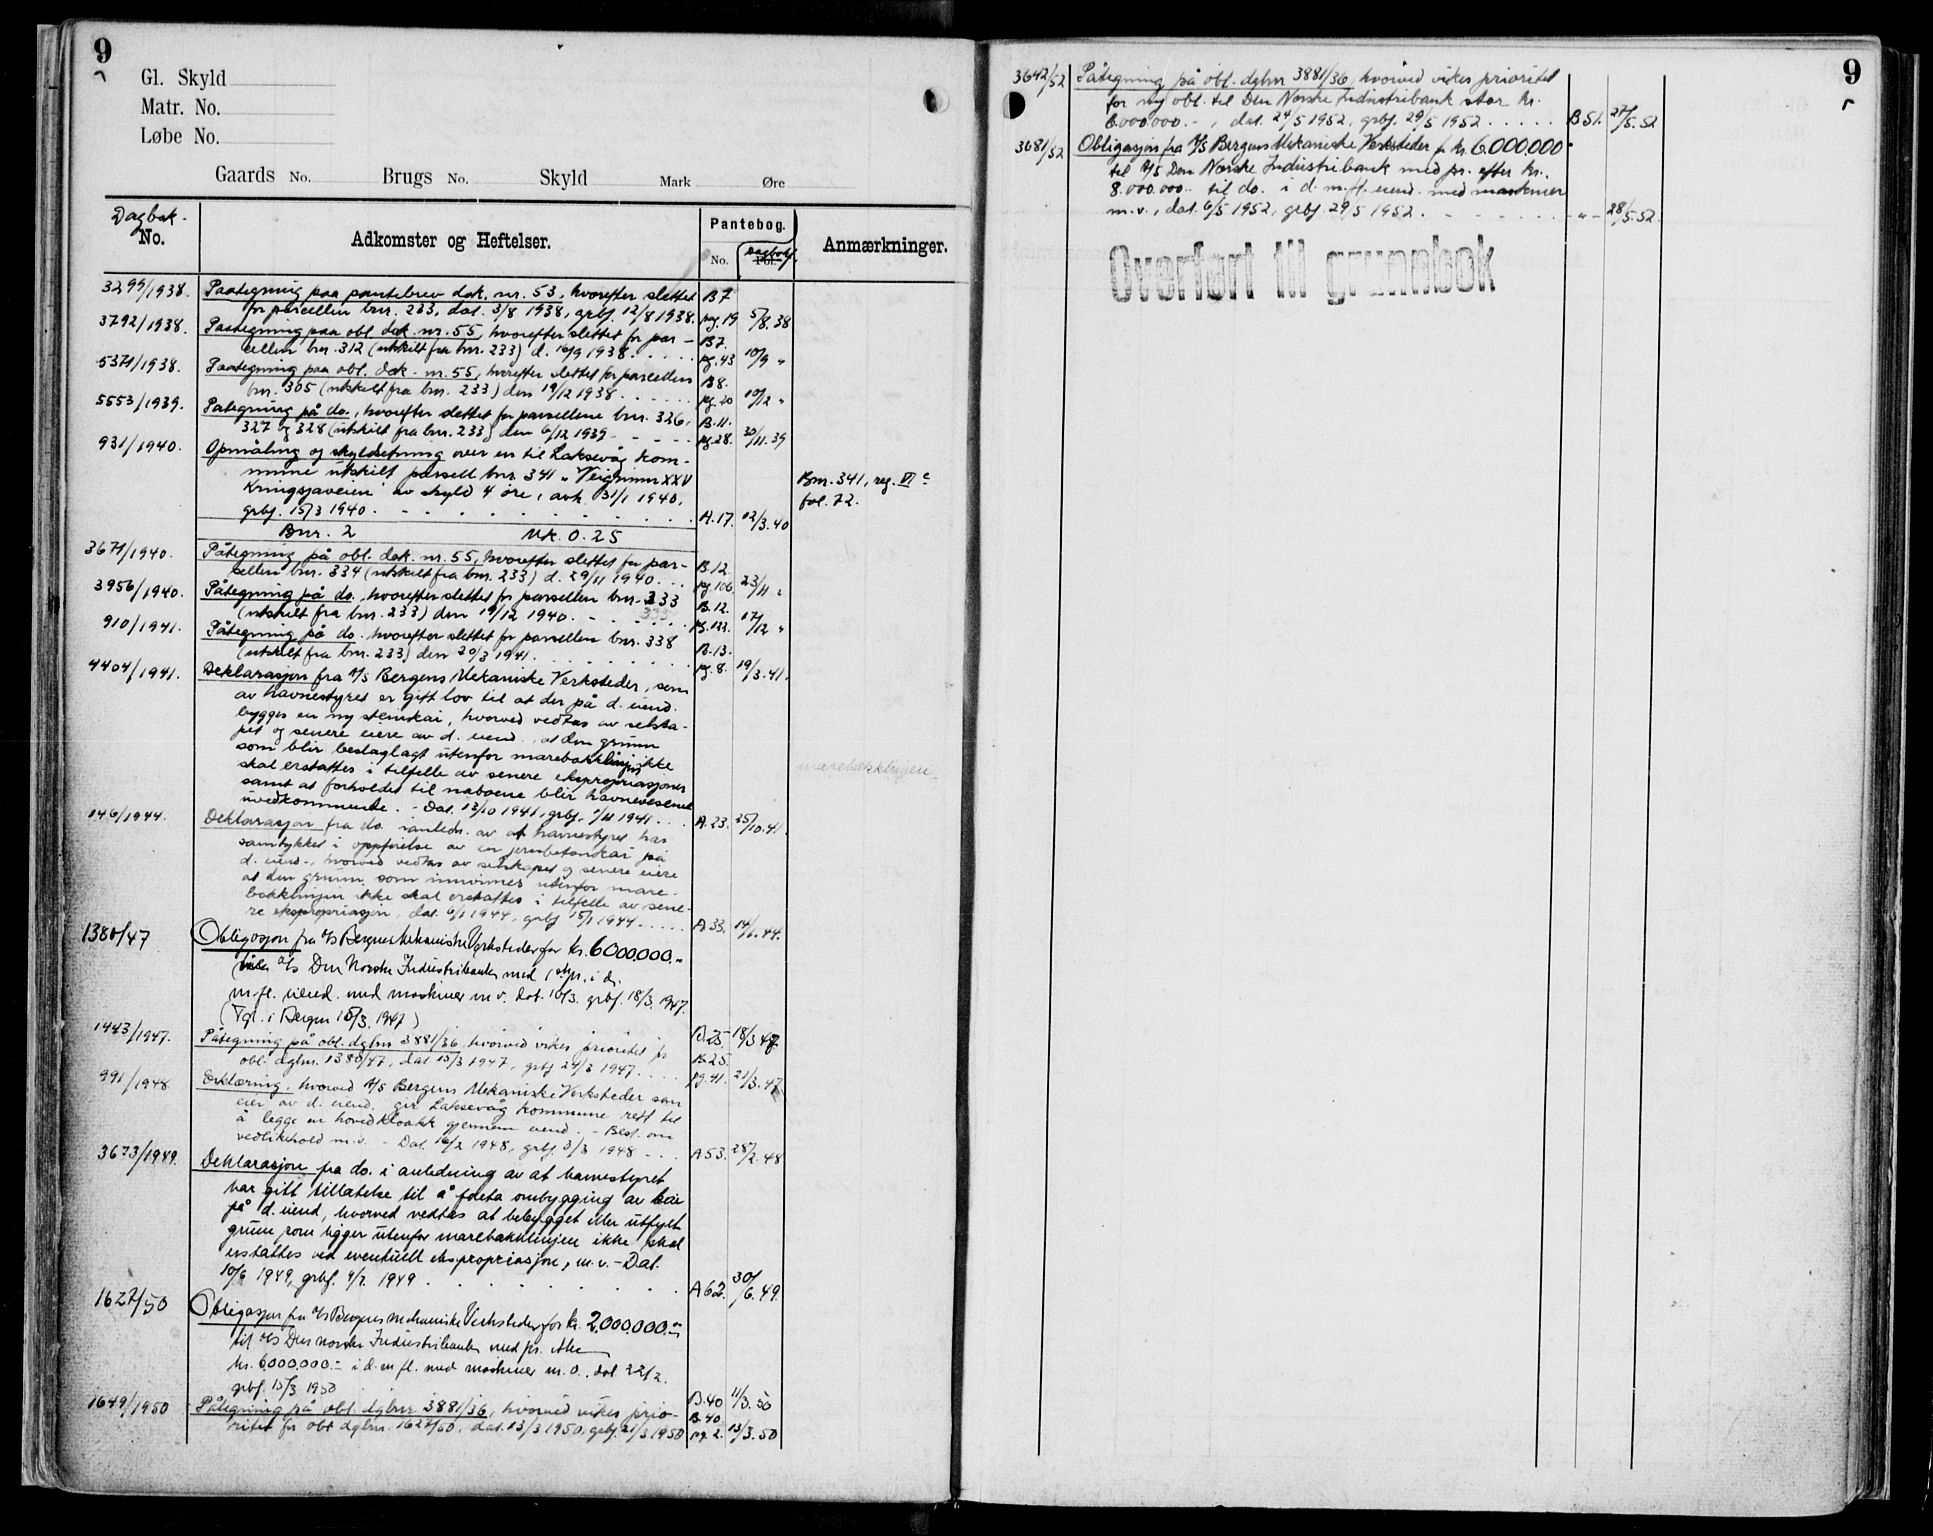 9
Gl. Skyld
Matr. No.
Løbe No.
Gaards No. Brugs No. Skyld Mark Øre
Dagbok-
No. Adkomster og Heftelser. Pantebog. Anmærkninger.
No. Fol. dagbokf.
3299/1938. Paategning paa pantebrev dok. nr. 53, hvorefter slettet B7
for parcellen bnr. 233, dat. 3/8 1938, grbf. 12/8 1938. pag. 19 5/8.38
3792/1938. Paategning paa obl. dok. nr. 55, hvorefter slettet for par- B7.
cellen bnr. 312 (utskilt fra bnr. 233) d. 16/9 1938. pg. 43 10/9 "
5371/1938. Paategning paa obl. dok. nr. 55, hvorefter slettet for parcellen B8.
bnr. 305 (utskilt fra bnr. 233) den 19/12 1938. pg. 20 10/12 "
5553/1939. Påtegning på do., hvorefter slettet for parsellene bnr. 326, B.11.
327 og 328 (utskilt fra bnr. 233) den 6/12 1939. pg. 28. 30/11.39
931/1940. Opmåling og skyldsetning over en til Laksevåg kom-
mune utskilt parsell bnr. 341 "Veigrunn XXV Bnr. 341, reg. VI c
Kringsjaveien" av skyld 4 øre, avh. 31/1 1940, fol. 72.
grbf. 15/3 1940. A.17. 12/3.40
Bnr. 2 Mk. 0.25
3671/1940. Påtegning på obl. dok. nr. 55, hvorefter slettet for par-
cellen bnr. 334 (utskilt fra bnr. 233) d. 29/11 1940. B.12. pg. 106 23/11 "
3956/1940. Påtegning på do., hvorefter slettet for parsellen bnr. 333 B.12.
(utskilt fra bnr. 233) den 19/12 1940. 333 pg. 122. 17/12 "
910/1941. Påtegning på do. hvorefter slettet for parsellen bnr. 338 B.13.
(utskilt fra bnr. 233) den 20/3 1941. pg. 8. 19/3.41.
4404/1941. Deklarasjon fra A/S Bergens Mekaniske Verksteder, som
av havnestyret er gitt lov til at der på d. eiend.
bygges en ny stenkai, hvorved vedtas av selska-
pet og senere eiere av d. eiend. at den grunn
som blir beslaglagt utenfor marebakklinjen ikke
skal erstattes i tilfelle av senere ekspropriasjoner marebakklinjen
samt at forholdet til naboene blir havnevesenet
uvedkommende. - Dat. 13/10 1941, grbf. 1/11 1941. A.23. 25/10.41.
146/1944. Deklarasjon fra do. i anledn. av at havnestyret har
samtykket i oppførelse av en jernbetonkai på
d. eiend., hvorved vedtas av selskapet og senere eiere
at den grunn som innvinnes utenfor mare-
bakklinjen ikke skal erstattes i tilfelle av sene-
re ekspropriasjon, dat. 6/1 1944, grbf. 15/1 1944. A.33. 14/1.44.
1380/47 Obligasjon fra A/S Bergens Mekaniske Verksteder for kr. 6000.000.-
til A/S Den Norske Industribank med 1ste pr. i d.
m.fl. eiend. med maskiner m.v. dat. 10/3. grbf. 18/3. 1947.
(Tgl. i Bergen 15/3. 1947) B.25. 18/3 47
1443/1947. Påtegning på obl. dgbnr 3881/36, hvorved vikes prioritet for
obl. dgbnr. 1380/47, dat. 15/3 1947, grbf. 24/3 1947. B.25. pg. 41. 21/3.47
991/1948 Erklæring, hvorved A/S Bergens Mekaniske Verksteder som
eier av d. eiend. gir Laksevåg kommune rett til
å legge en hovedkloakk gjennem eiend. - Best. om
vedlikehold m.v. - Dat. 16/2 1948, grbf. 3/3 1948 A53. 28/2.48
3673/1949. Deklarasjon fra do. i anledning av at havnestyret
har gitt tillatelse til å foreta ombygging av kai
på d. eiend, hvorved vedtas at bebygget eller utfylt
grunn som ligger utenfor marebakklinjen ikke skal
erstattes ved eventuell ekspropriasjon, m.v. - Dat.
10/6 1949, grbf. 4/7. 1949 A62. 30/6.49.
1627/50 Obligasjon fra A/S Bergens mekaniske Verksteder for kr. 2.000.000.-
til A/S Den norske Industribank med pr. etter
kr. 6000.000.- i d. m fl. med maskiner m.v., dat. 22/2.
grbf. 15/3 1950 B.40 11/3.50
1649/1950 Påtegning på obl. dgbnr 3881/36, hvorved vikes prio- B.40.
ritet for obl dgbnr. 1627/50, dat. 13/3 1950, grbf. 21/3 1950 pg. 2. 13/3.50
9
3642/52 Påtegning på obl. dgbnr 3881/36, hvorved vikes prioritet
for ny obl. til Den Norske Industribank stor kr.
6.000.000.-, dat. 24/5 1952, grbf. 29/5 1952. B 51. 27/5.52
3681/52 Obligasjon fra A/S Bergens Mekaniske Verksteder for kr. 6.000.000.-
til A/S Den Norske Industribank med pr. efter kr.
8.000.000.- til do. i d. m.fl. eiend. med maskiner
m.v., dat. 6/5 1952, grbf. 29/5 1952. - " - 28/5.52.
Overført til grunnbok